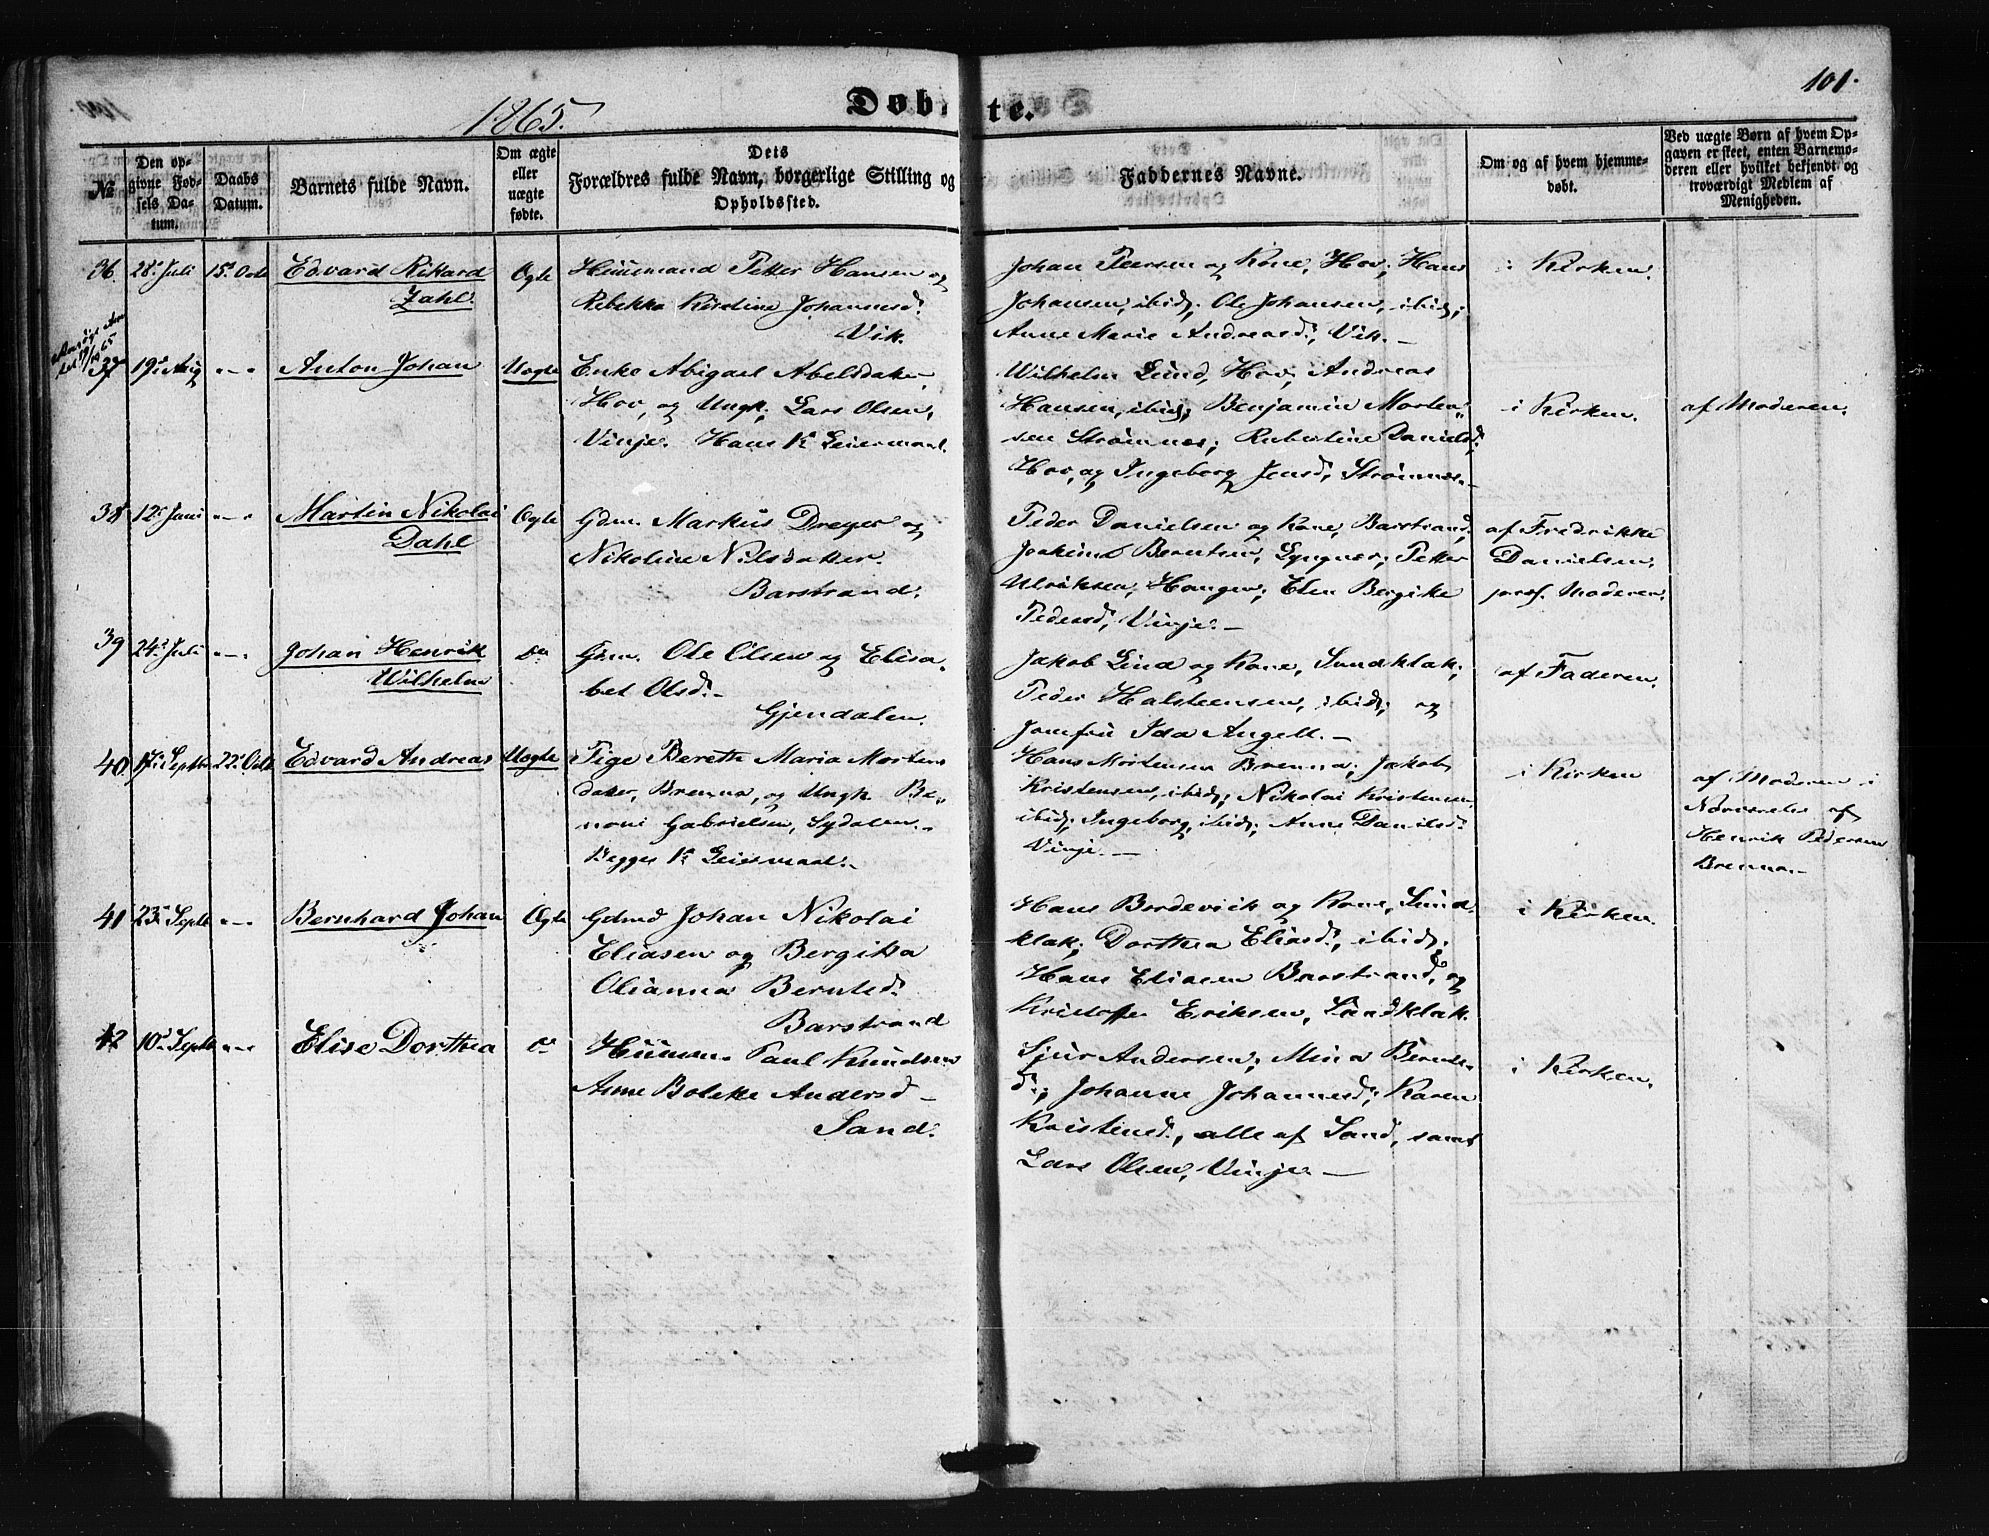 1865.
Døbte.
101.
№
Den opgivne Fødsels Datum.
Daabs Datum.
Barnets fulde Navn.
Om ægte eller uægte fødte.
Dets
Forældres fulde Navn, borgerlige Stilling og
Opholdssted.
Faddernes Navne.
Om og af hvem hjemmedøbt.
Ved uægte Børn af hvem Opgaven er skeet, enten Barnemoderen eller hvilket bekjendt og troværdigt Medlem af Menigheden.
36. 28de Juli 15de Octr Edvard Rikard Ægte Huusmand Petter Hansen og
Zahl. Rebekka Kirstine Johannesd.
Vik.
Johan Peersen og Kone, Hov; Hans
Johansen, ibid; Ole Johansen, ibid;
Anne Marie Andreasd., Vik.
i Kirken.
37 19de Aug " — " Anton Johan Uægte Enke Abigael Abelsdatter,
Hov, og Ungk. Lars Olsen,
Vinje. Hans 1ste Leiermaal.
Wilhelm Lund, Hov; Andreas
Hansen, ibid; Benjamin Morten-
sen Strømnes; Rubertine Danielsd.
Hov, og Ingeborg Jensd., Strømnes.
i Kirken.
af Moderen.
38 12te Juni " — " Martin Nikolai Ægte Gdm. Markus Dreyer og
Dahl Nikoline Nilsdatter.
Barstrand.
Peder Danielsen og Kone, Barstrand;
Joakim Berntsen, Lyngnes; Petter
Ulriksen, Haugen; Elen Bergitte
Pedersd., Vinje.
af Fredrikke
Danielsen,
præs. Moderen.
39 24de Juli " — " Johan Henrik Do Gdm. Ole Olsen og Elisa-
Wilhelm bet Olsd.
Gjendalen.
Jakob Lind og Kone, Sandklak;
Peder Halsteensen, ibid; og
Jomfru Ida Angell.
af Faderen.
40. 17de Septbr 22de Octr Edvard Andreas Uægte Pige Berette Maria Mortens
datter, Brenna, og Ungk. Be-
noni Gabrielsen, Sydalen.
Begges 1ste Leiermaal.
Hans Mortensen Brenna; Jakob
Kristensen, ibid; Nikolai Kristensen
ibid; Ingeborg, ibid; Anne Danielsd.
Vinje.
i Kirken
af Moderen i
Nærværelse af
Henrik Pedersen
Brenna.
41 23de Septbr " — " Bernhard Johan Ægte Gdmd Johan Nikolai
Eliasen og Bergitta
Olianna Berntsd.
Barstrand
Hans Bordevick og Kone, Sand-
klak; Dorthea Eliasd., ibid;
Hans Eliasen Barstrand, og
Kristoffer Eriksen, Sandklak.
i Kirken.
42 10de Septbr " — " Elise Dorthea do Huusm. Paul Knudsen
Anne Bolette Andersd
Sand.
Sjur Andersen; Mina Bernts-
d.; Johanne Johannesd.; Karen
Kristensd., alle af Sand, samt
Lars Olsen, Vinje.
i Kirken.